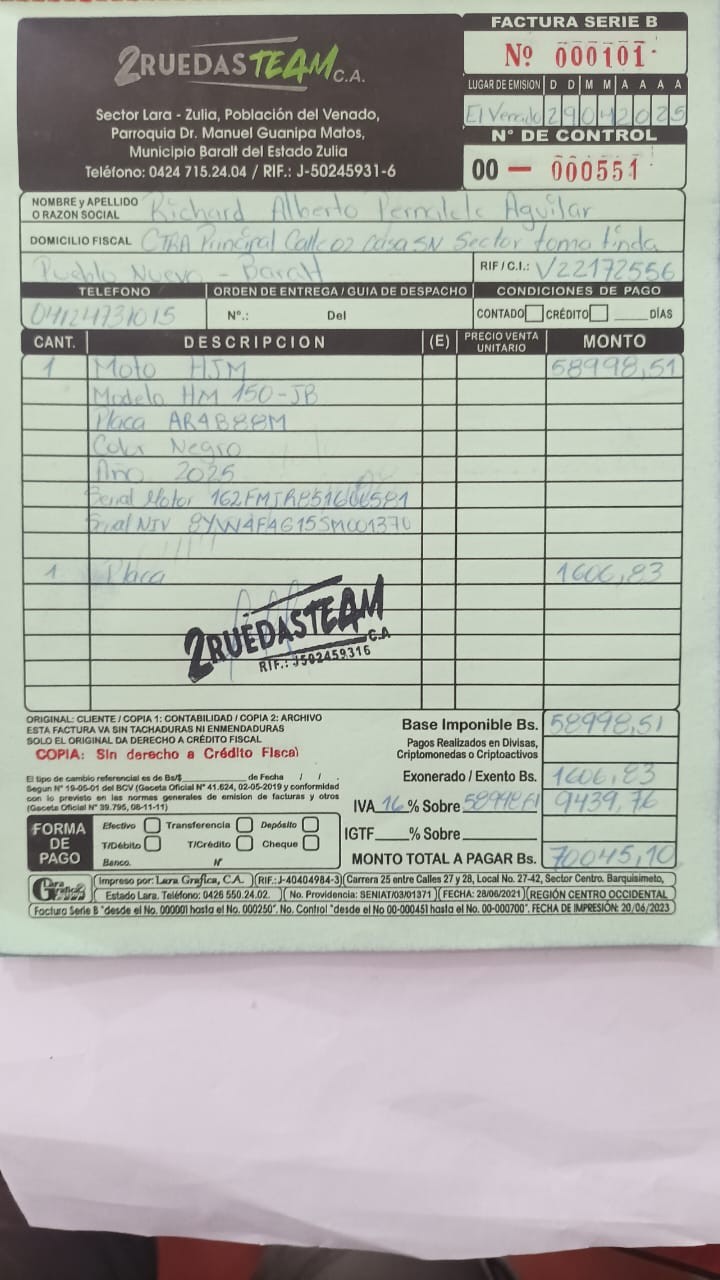 2RUEDASTEAM C.A.
Sector Lara - Zulia, Población del Venado,
Parroquia Dr. Manuel Guanipa Matos,
Municipio Baralt del Estado Zulia
Teléfono: 0424 715.24.04 / RIF.: J-50245931-6
FACTURA SERIE B
Nº 000101
LUGAR DE EMISION D D M M A A A A
El Venado 29042025
N° DE CONTROL
00 - 000551
NOMBRE y APELLIDO
O RAZON SOCIAL Richard Alberto Aguilar
DOMICILIO FISCAL CTRA Principal Calle 02 Casa SN Sector toma linda
Pueblo Nuevo - Baralt RIF / C.I.: V22172556
TELEFONO ORDEN DE ENTREGA / GUIA DE DESPACHO CONDICIONES DE PAGO
04124731015 N°.: Del CONTADO CRÉDITO DÍAS
CANT. DESCRIPCION (E) PRECIO VENTA UNITARIO MONTO
1 Moto HJM 58998,51
Modelo HM 150-JB
Placa AR4B88M
Color Negro
Año 2025
Serial Motor
Serial NIV
1 Placa 1606,83
2RUEDASTEAM C.A
RIF.: J502459316
ORIGINAL: CLIENTE / COPIA 1: CONTABILIDAD / COPIA 2: ARCHIVO
ESTA FACTURA VA SIN TACHADURAS NI ENMENDADURAS
SOLO EL ORIGINAL DA DERECHO A CRÉDITO FISCAL
COPIA: Sin derecho a Crédito Fiscal
El tipo de cambio referencial es de Bs/$ de Fecha / / .
Segun N° 19-05-01 del BCV (Gaceta Oficial N° 41.624, 02-05-2019 y conformidad
con lo previsto en las normas generales de emision de facturas y otros
(Gaceta Oficial N° 39.795, 08-11-11)
Base Imponible Bs. 58998,51
Pagos Realizados en Divisas,
Criptomonedas o Criptoactivos
Exonerado / Exento Bs. 1606,83
IVA 16 % Sobre 58998,51 9439,76
IGTF % Sobre
MONTO TOTAL A PAGAR Bs. 70045,10
FORMA DE PAGO
Efectivo Transferencia Depósito
T/Débito T/Crédito Cheque
Banco. Nº
Lara Grafica
Impreso por: Lara Grafica, C.A. (RIF.: J-40404984-3) Carrera 25 entre Calles 27 y 28, Local No. 27-42, Sector Centro. Barquisimeto,
Estado Lara. Teléfono: 0426 550.24.02. No. Providencia: SENIAT/03/01371 FECHA: 28/06/2021 REGIÓN CENTRO OCCIDENTAL
Factura Serie B "desde el No. 000001 hasta el No. 000250". No. Control "desde el No 00-000451 hasta el No. 00-000700". FECHA DE IMPRESIÓN: 20/06/2023